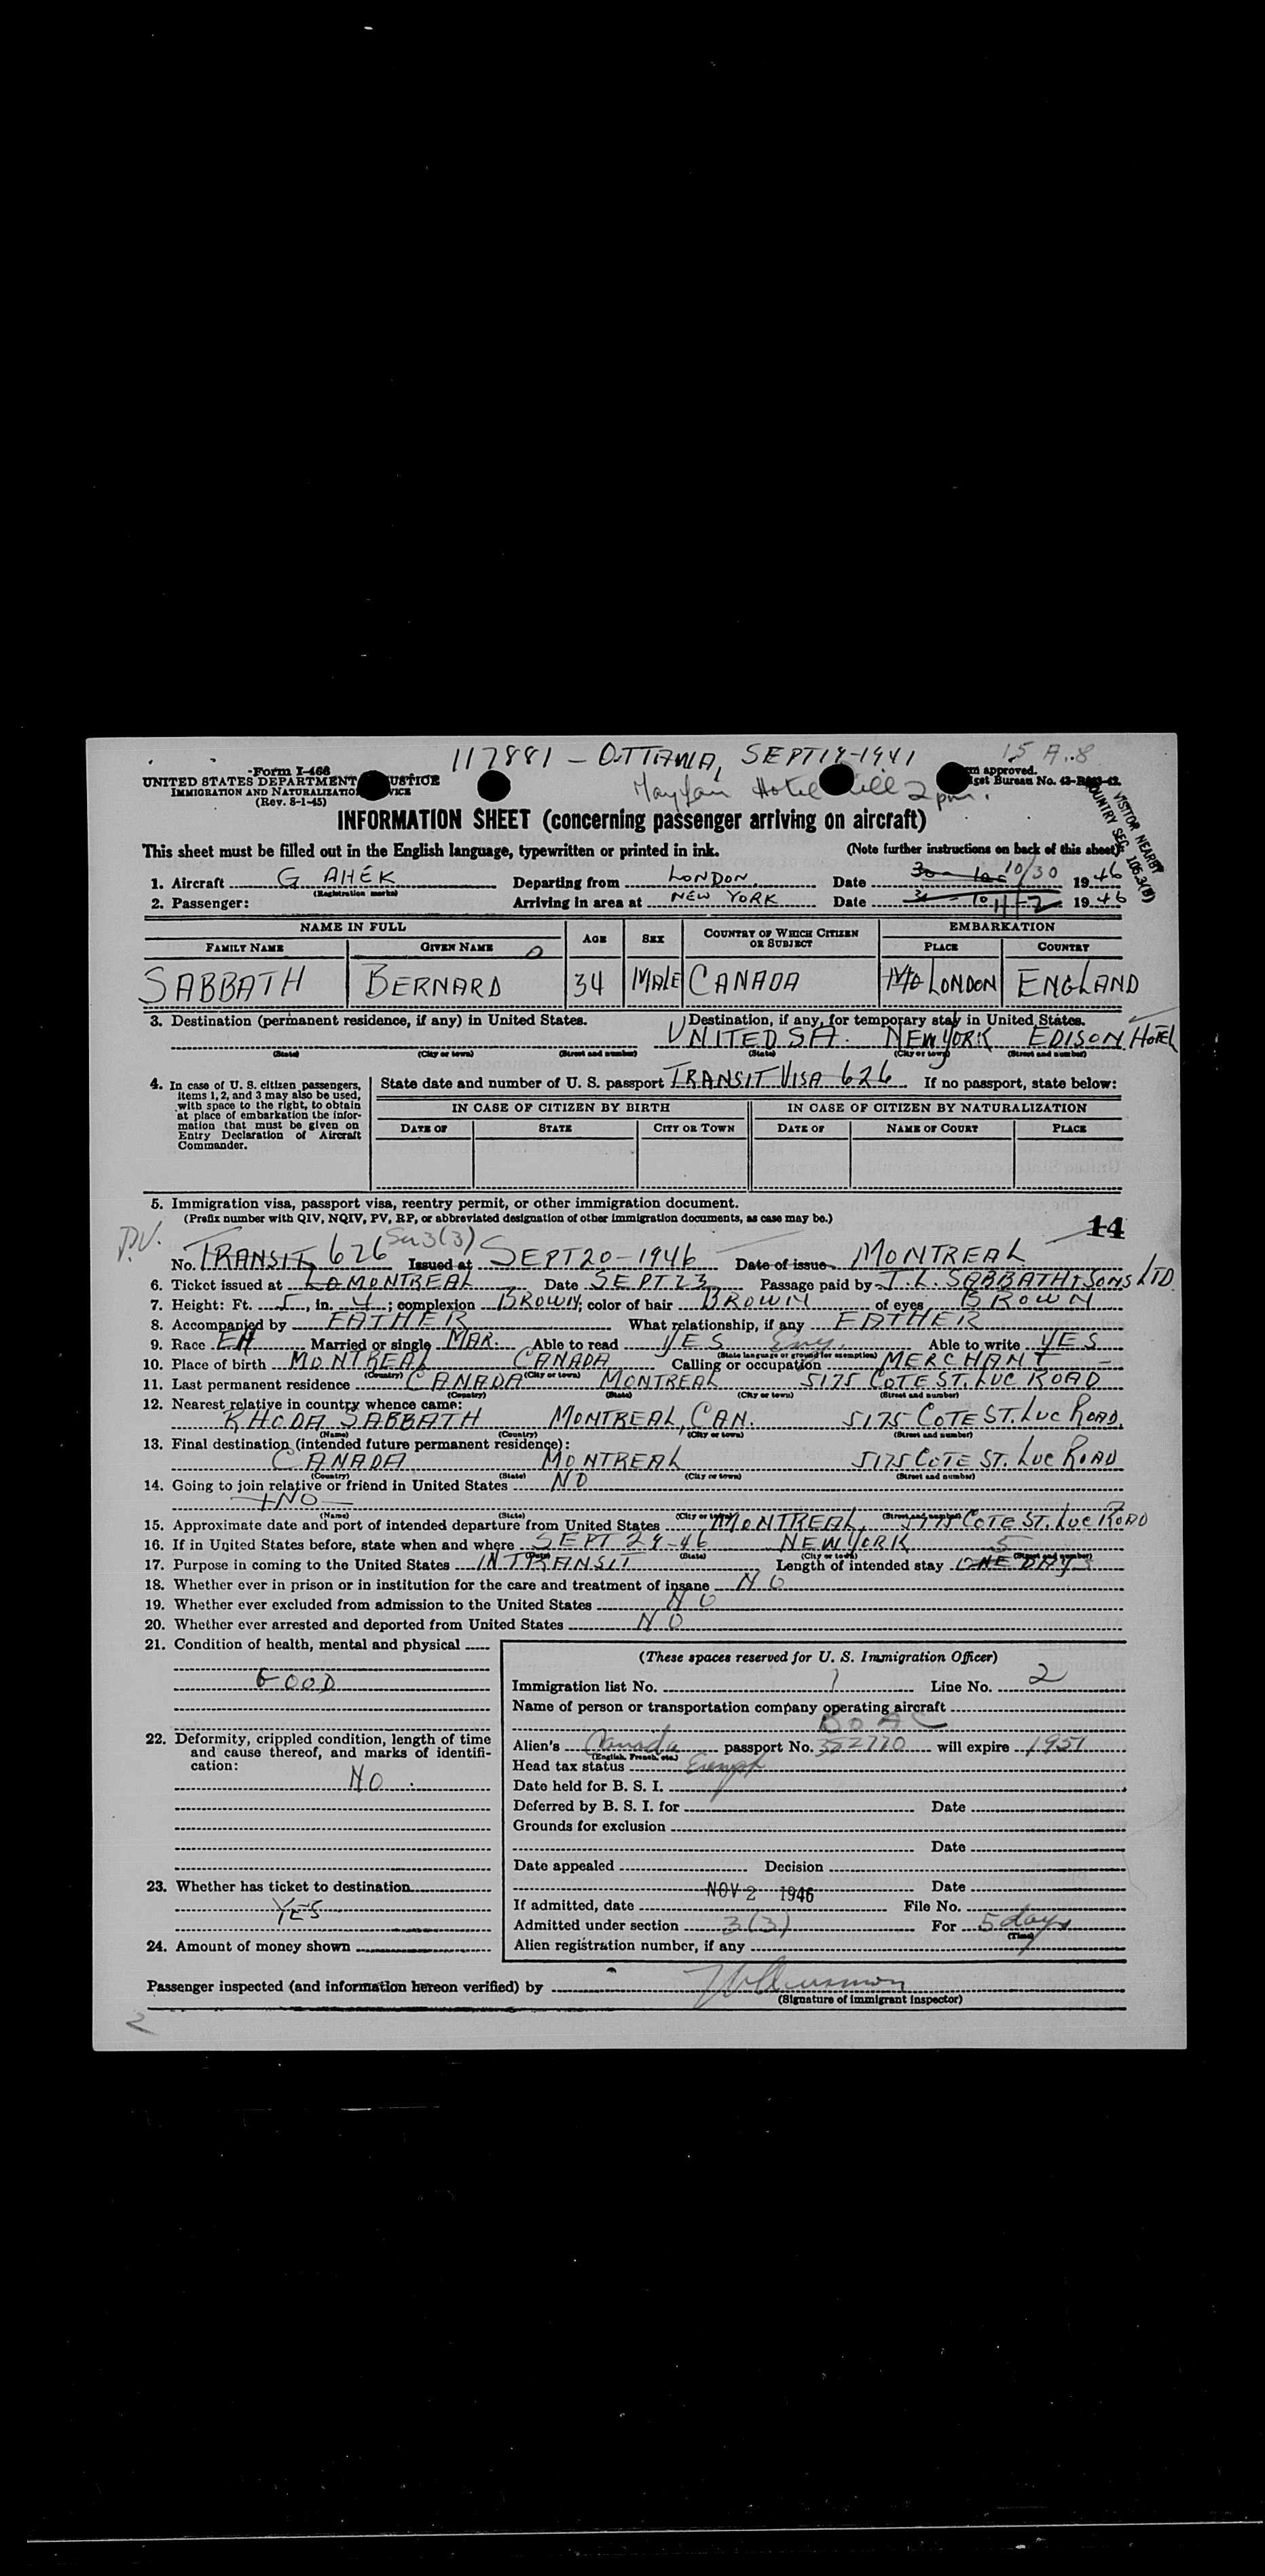 117881 - OTTAWA, SEPT 19-1941
15 A.8
Form I-466
UNITED STATES DEPARTMENT JUSTICE
IMMIGRATION AND NATURALIZATION
(Rev. 8-1-45)
Mayfair Hotel till 2 pm.
approved.
Budget Bureau No. 43-
VISITOR NEARBY
COUNTRY SEC. 106.3(B)
INFORMATION SHEET (concerning passenger arriving on aircraft)
This sheet must be filled out in the English language, typewritten or printed in ink. (Note further instructions on back of this sheet)
1. Aircraft G AHEK Departing from LONDON Date 10/30 1946
(Registration marks)
2. Passenger: Arriving in area at NEW YORK Date 11-2 1946
NAME IN FULL AGE SEX COUNTRY OF WHICH CITIZEN OR SUBJECT EMBARKATION
FAMILY NAME GIVEN NAME PLACE COUNTRY
SABBATH BERNARD 34 MALE CANADA LONDON ENGLAND
3. Destination (permanent residence, if any) in United States. Destination, if any, for temporary stay in United States.
UNITED SA. NEW YORK EDISON HOTEL
(State) (City or town) (Street and number) (State) (City or town) (Street and number)
4. In case of U. S. citizen passengers, items 1, 2, and 3 may also be used, with space to the right, to obtain at place of embarkation the information that must be given on Entry Declaration of Aircraft Commander.
State date and number of U. S. passport TRANSIT VISA 626 If no passport, state below:
IN CASE OF CITIZEN BY BIRTH IN CASE OF CITIZEN BY NATURALIZATION
DATE OF STATE CITY OR TOWN DATE OF NAME OF COURT PLACE
5. Immigration visa, passport visa, reentry permit, or other immigration document.
(Prefix number with QIV, NQIV, PV, RP, or abbreviated designation of other immigration documents, as case may be.)
14
P.V.
No. TRANSIT 626 3(3) Issued at SEPT 20-1946 Date of issue MONTREAL
6. Ticket issued at MONTREAL Date SEPT 23 Passage paid by T. L. SABBATH & SONS LTD
7. Height: Ft. 5, in. 4; complexion BROWN; color of hair BROWN of eyes BROWN
8. Accompanied by FATHER What relationship, if any FATHER
9. Race EH Married or single MAR. Able to read YES Eng. Able to write YES
(State language or ground for exemption)
10. Place of birth MONTREAL CANADA Calling or occupation MERCHANT
(Country) (City or town)
11. Last permanent residence CANADA MONTREAL 5175 COTE ST. LUC ROAD
(Country) (State) (City or town) (Street and number)
12. Nearest relative in country whence came:
RHODA SABBATH MONTREAL, CAN. 5175 COTE ST. LUC ROAD.
(Name) (Country) (City or town) (Street and number)
13. Final destination (intended future permanent residence):
CANADA MONTREAL 5175 COTE ST. LUC ROAD
(Country) (State) (City or town) (Street and number)
14. Going to join relative or friend in United States NO
NO
(Name) (State) (City or town) (Street and number)
15. Approximate date and port of intended departure from United States MONTREAL, 5175 COTE ST. LUC ROAD
16. If in United States before, state when and where SEPT 24-46 NEW YORK
(Date) (State) (City or town) (Street and number)
17. Purpose in coming to the United States IN TRANSIT Length of intended stay ONE DAY 5
18. Whether ever in prison or in institution for the care and treatment of insane NO
19. Whether ever excluded from admission to the United States NO
20. Whether ever arrested and deported from United States NO
21. Condition of health, mental and physical
GOOD
22. Deformity, crippled condition, length of time and cause thereof, and marks of identification:
NO
23. Whether has ticket to destination
YES
24. Amount of money shown
(These spaces reserved for U. S. Immigration Officer)
Immigration list No. 1 Line No. 2
Name of person or transportation company operating aircraft
BOAC
Alien's Canada passport No. will expire 1951
(English, French, etc.)
Head tax status Exempt
Date held for B. S. I.
Deferred by B. S. I. for Date
Grounds for exclusion
Date
Date appealed Decision
Date
NOV 2 1946
If admitted, date File No.
Admitted under section 3(3) For 5 days
(Time)
Alien registration number, if any
Passenger inspected (and information hereon verified) by
(Signature of immigrant inspector)
2